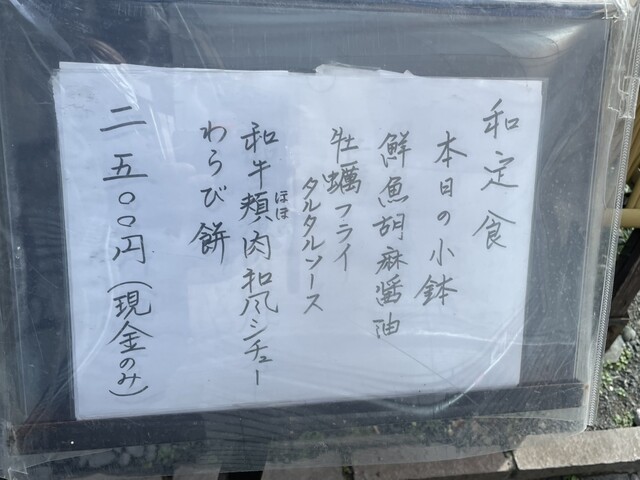 和定食
本日の小鉢
鮮魚胡麻醤油
牡蠣フライ
タルタルソース
和牛頬肉和風シチュー
ほほ
わらび餅
二五〇〇円(現金のみ)